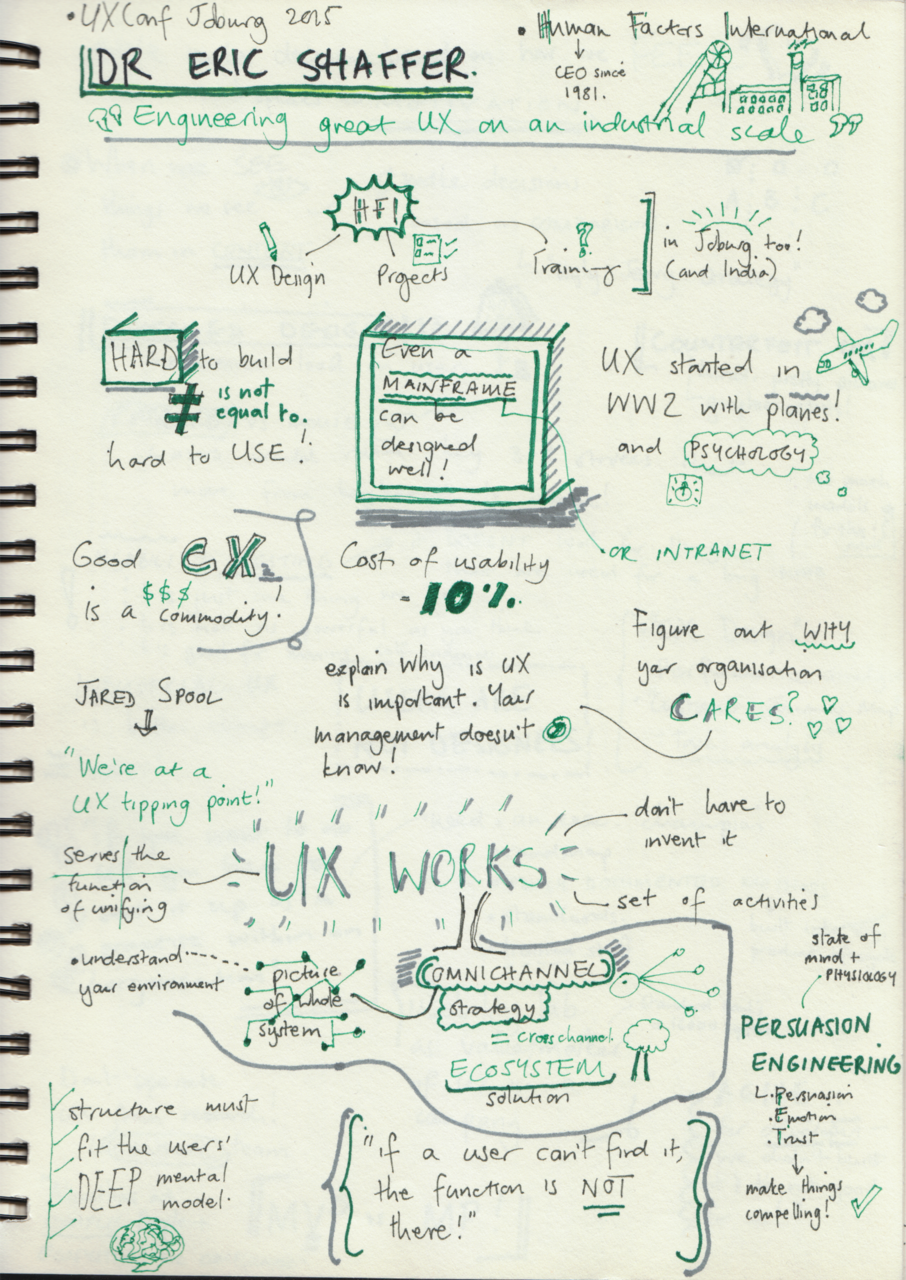 • UXConf Joburg 2015
DR ERIC SHAFFER.
• Human Factors International
CEO since
1981.
"Engineering great UX on an industrial scale"
HFI
UX Design
Projects
Training
?
in Joburg too!
(and India)
HARD to build
≠ is not
equal to.
hard to USE!
Even a
MAINFRAME
can be
designed
well!
OR INTRANET
UX started in
WW2 with planes!
and PSYCHOLOGY
Good CX
is a commodity!
$$$
Cost of usability
- 10%.
explain why is UX
is important. Your
management doesn't
know!
Figure out WHY
yar organisation
CARES?
JARED SPOOL
"We're at a
UX tipping point!"
UX WORKS
don't have to
invent it
set of activities
serves the
function
of unifying
• understand
your environment
picture
of whole
system
OMNICHANNEL
strategy
= crosschannel.
ECOSYSTEM
solution
state of
mind +
PHYSIOLOGY
PERSUASION
ENGINEERING
. Persuasion
. Emotion
. Trust
make things
compelling!
structure must
fit the users'
DEEP mental
model.
"if a user can't find it,
the function is NOT
there!"